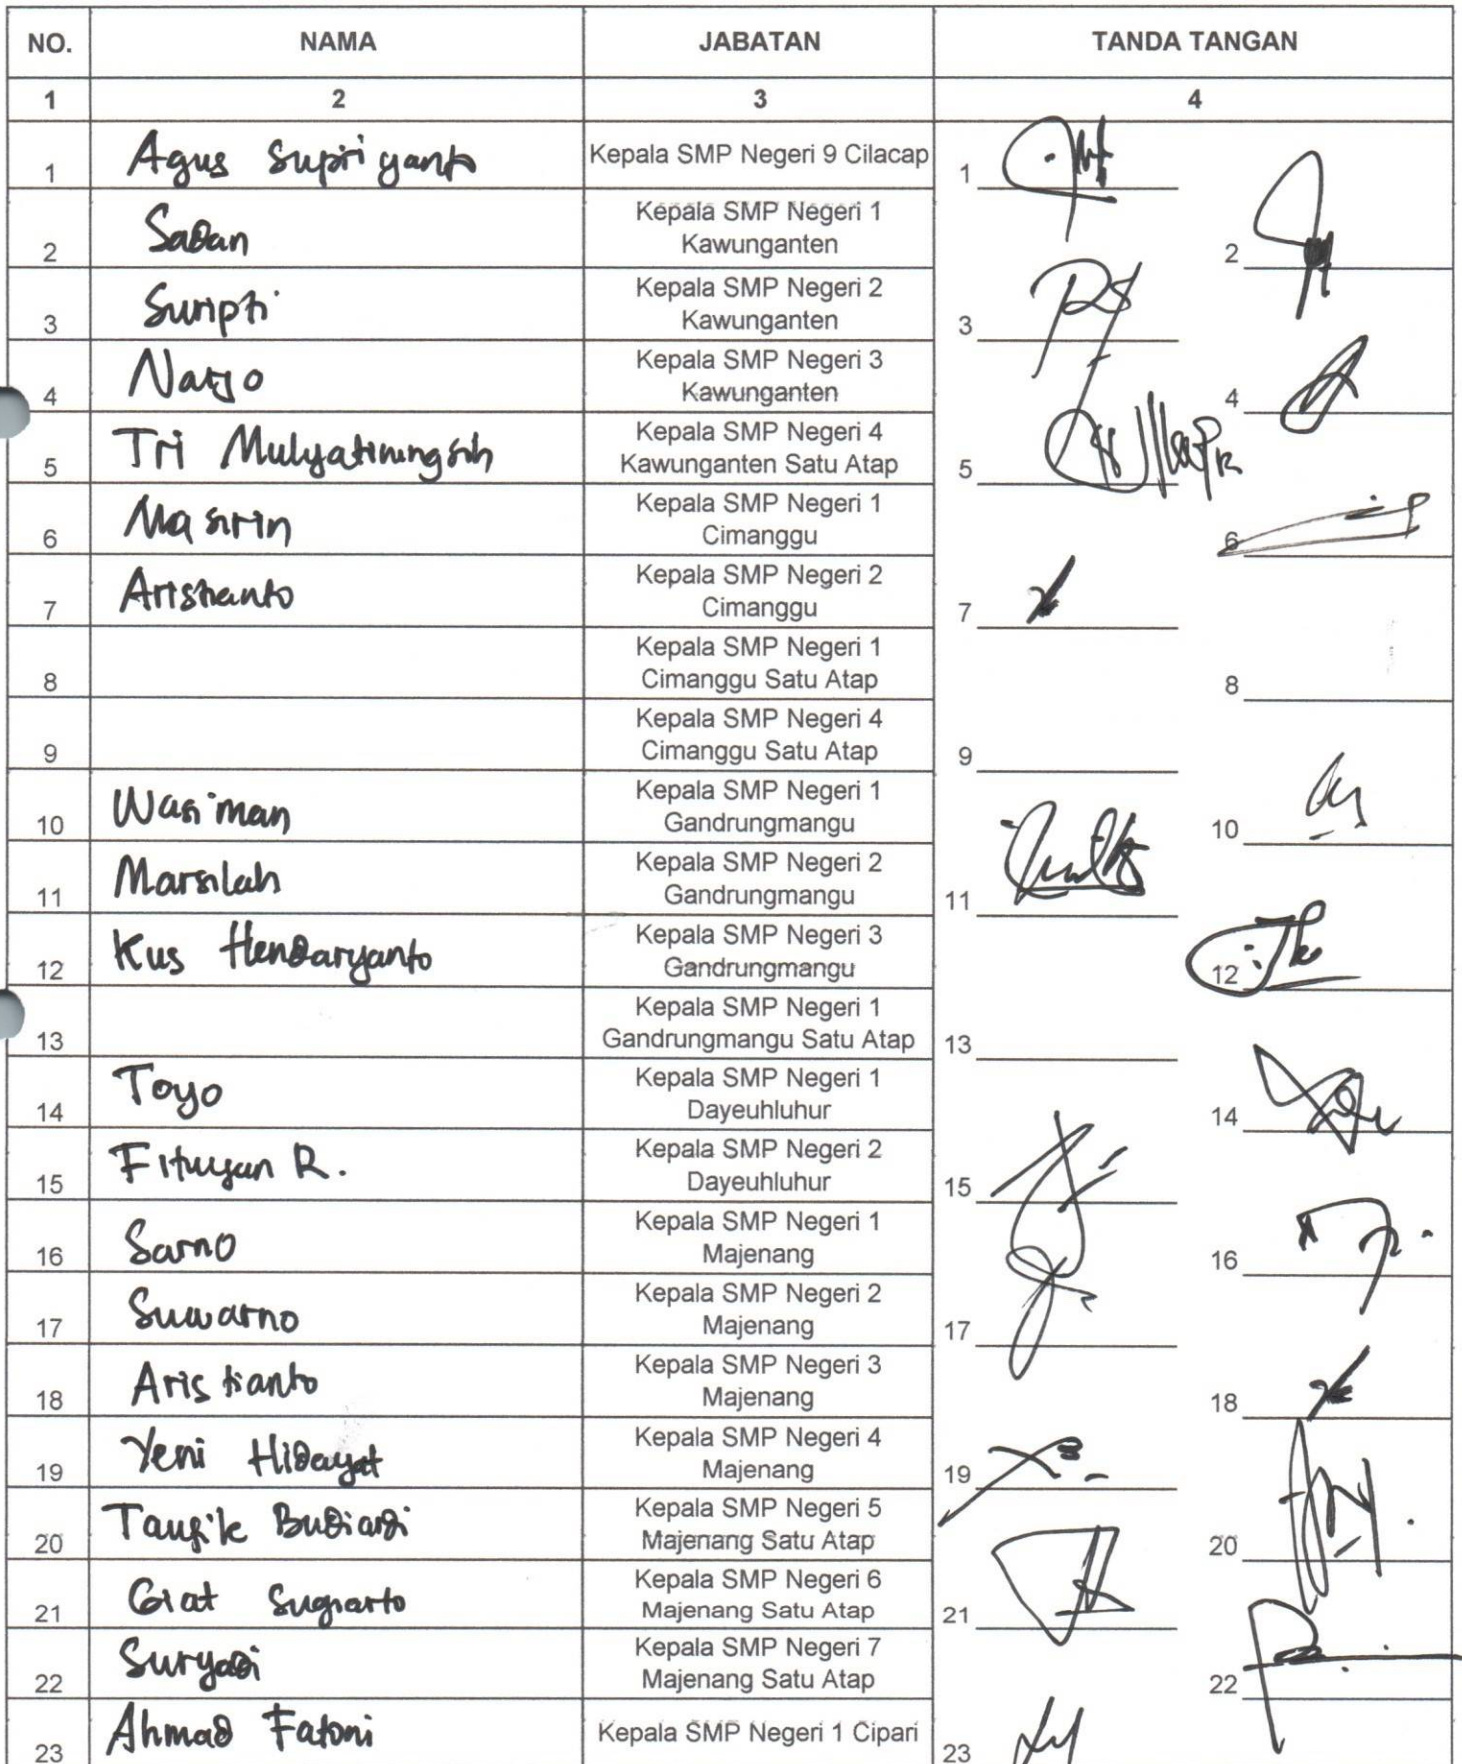 NO. NAMA JABATAN TANDA TANGAN
1 2 3 4
1 Agus Supriyanto Kepala SMP Negeri 9 Cilacap 1
2 Sadan Kepala SMP Negeri 1 Kawunganten 2
3 Suripti Kepala SMP Negeri 2 Kawunganten 3
4 Narjo Kepala SMP Negeri 3 Kawunganten 4
5 Tri Mulyatiningsih Kepala SMP Negeri 4 Kawunganten Satu Atap 5
6 Masirin Kepala SMP Negeri 1 Cimanggu 6
7 Aristianto Kepala SMP Negeri 2 Cimanggu 7
8 Kepala SMP Negeri 1 Cimanggu Satu Atap 8
9 Kepala SMP Negeri 4 Cimanggu Satu Atap 9
10 Wasiman Kepala SMP Negeri 1 Gandrungmangu 10
11 Marsilah Kepala SMP Negeri 2 Gandrungmangu 11
12 Kus Hendaryanto Kepala SMP Negeri 3 Gandrungmangu 12
13 Kepala SMP Negeri 1 Gandrungmangu Satu Atap 13
14 Toyo Kepala SMP Negeri 1 Dayeuhluhur 14
15 R. Kepala SMP Negeri 2 Dayeuhluhur 15
16 Sarno Kepala SMP Negeri 1 Majenang 16
17 Suwarno Kepala SMP Negeri 2 Majenang 17
18 Aristianto Kepala SMP Negeri 3 Majenang 18
19 Yeni Hidayat Kepala SMP Negeri 4 Majenang 19
20 Taufik Budiardi Kepala SMP Negeri 5 Majenang Satu Atap 20
21 Giat Sugiarto Kepala SMP Negeri 6 Majenang Satu Atap 21
22 Suryadi Kepala SMP Negeri 7 Majenang Satu Atap 22
23 Ahmad Fatoni Kepala SMP Negeri 1 Cipari 23